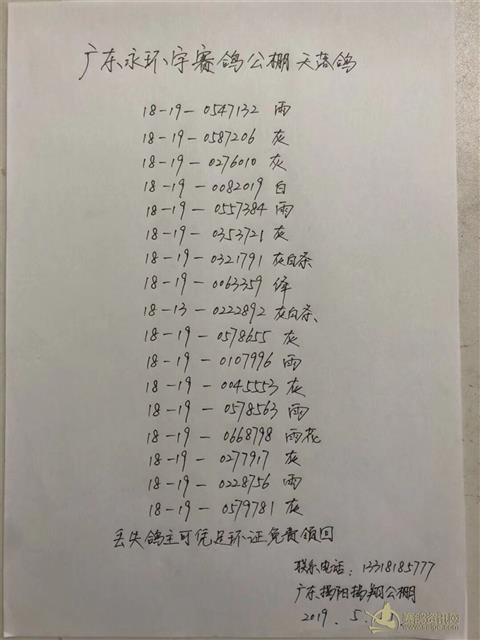 广东永环宇赛鸽公棚天落鸽
18-19-0547132 雨
18-19-0587206 灰
18-19-0276010 灰
18-19-0082019 白
18-19-0557384 雨
18-19-0353721 灰
18-19-0321791 灰白条
18-19-0063359 绛
18-13-0222892 灰白条
18-19-0578655 灰
18-19-0107996 雨
18-19-0045553 灰
18-19-0578563 雨
18-19-0668798 雨花
18-19-0277917 灰
18-19-0228756 雨
18-19-0579781 灰
丢失鸽主可凭足环证免费领回
联系电话:13318185777
广东揭阳揭翔公棚
2019.5.